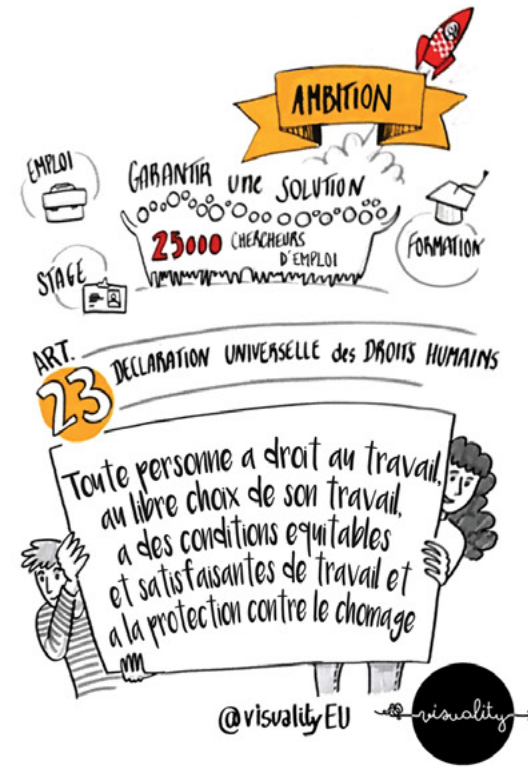 AMBITION
EMPLOI
GARANTIR une SOLUTION
25000 CHERCHEURS
D'EMPLOI
FORMATION
STAGE
ART.
23 DECLARATION UNIVERSELLE des DROITS HUMAINS
Toute personne a droit au travail,
au libre choix de son travail,
a des conditions equitables
et satisfaisantes de travail et
a la protection contre le chomage
@visualityEU
visuality